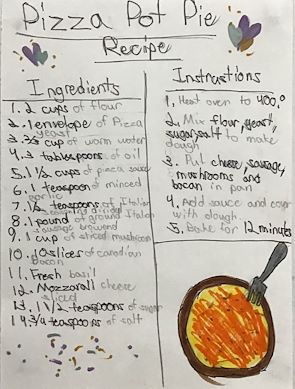 Pizza Pot Pie
Recipe
Ingredients
1. 2 cups of flour
2. 1 envelope of Pizza
yeast
3. 2/3 cup of worm water
4. 3 tablespoons of oil
5. 1 1/2 cups of pizza sauce
6. 1 teaspoon of minced
garlic
7. 1/2 teaspoons of Italian
8. 1 pound of ground Italian
sausage browend
9. 1 cup of sliced mushroom
10. 10 slices of canadian
bacon
11. Fresh basil
12. Mozzarall cheese
sliced
13. 1 1/2 teaspoons of sugar
14 3/4 teaspoons of salt
Instructions
1. Heat oven to 400.°
2. Mix flour, yeast,
sugar, salt to make
dough
3. Put cheese, sausage,
mushrooms and
bacan in pan
4. Add sauce and cover
with dough.
5. Bake for 12 minutes